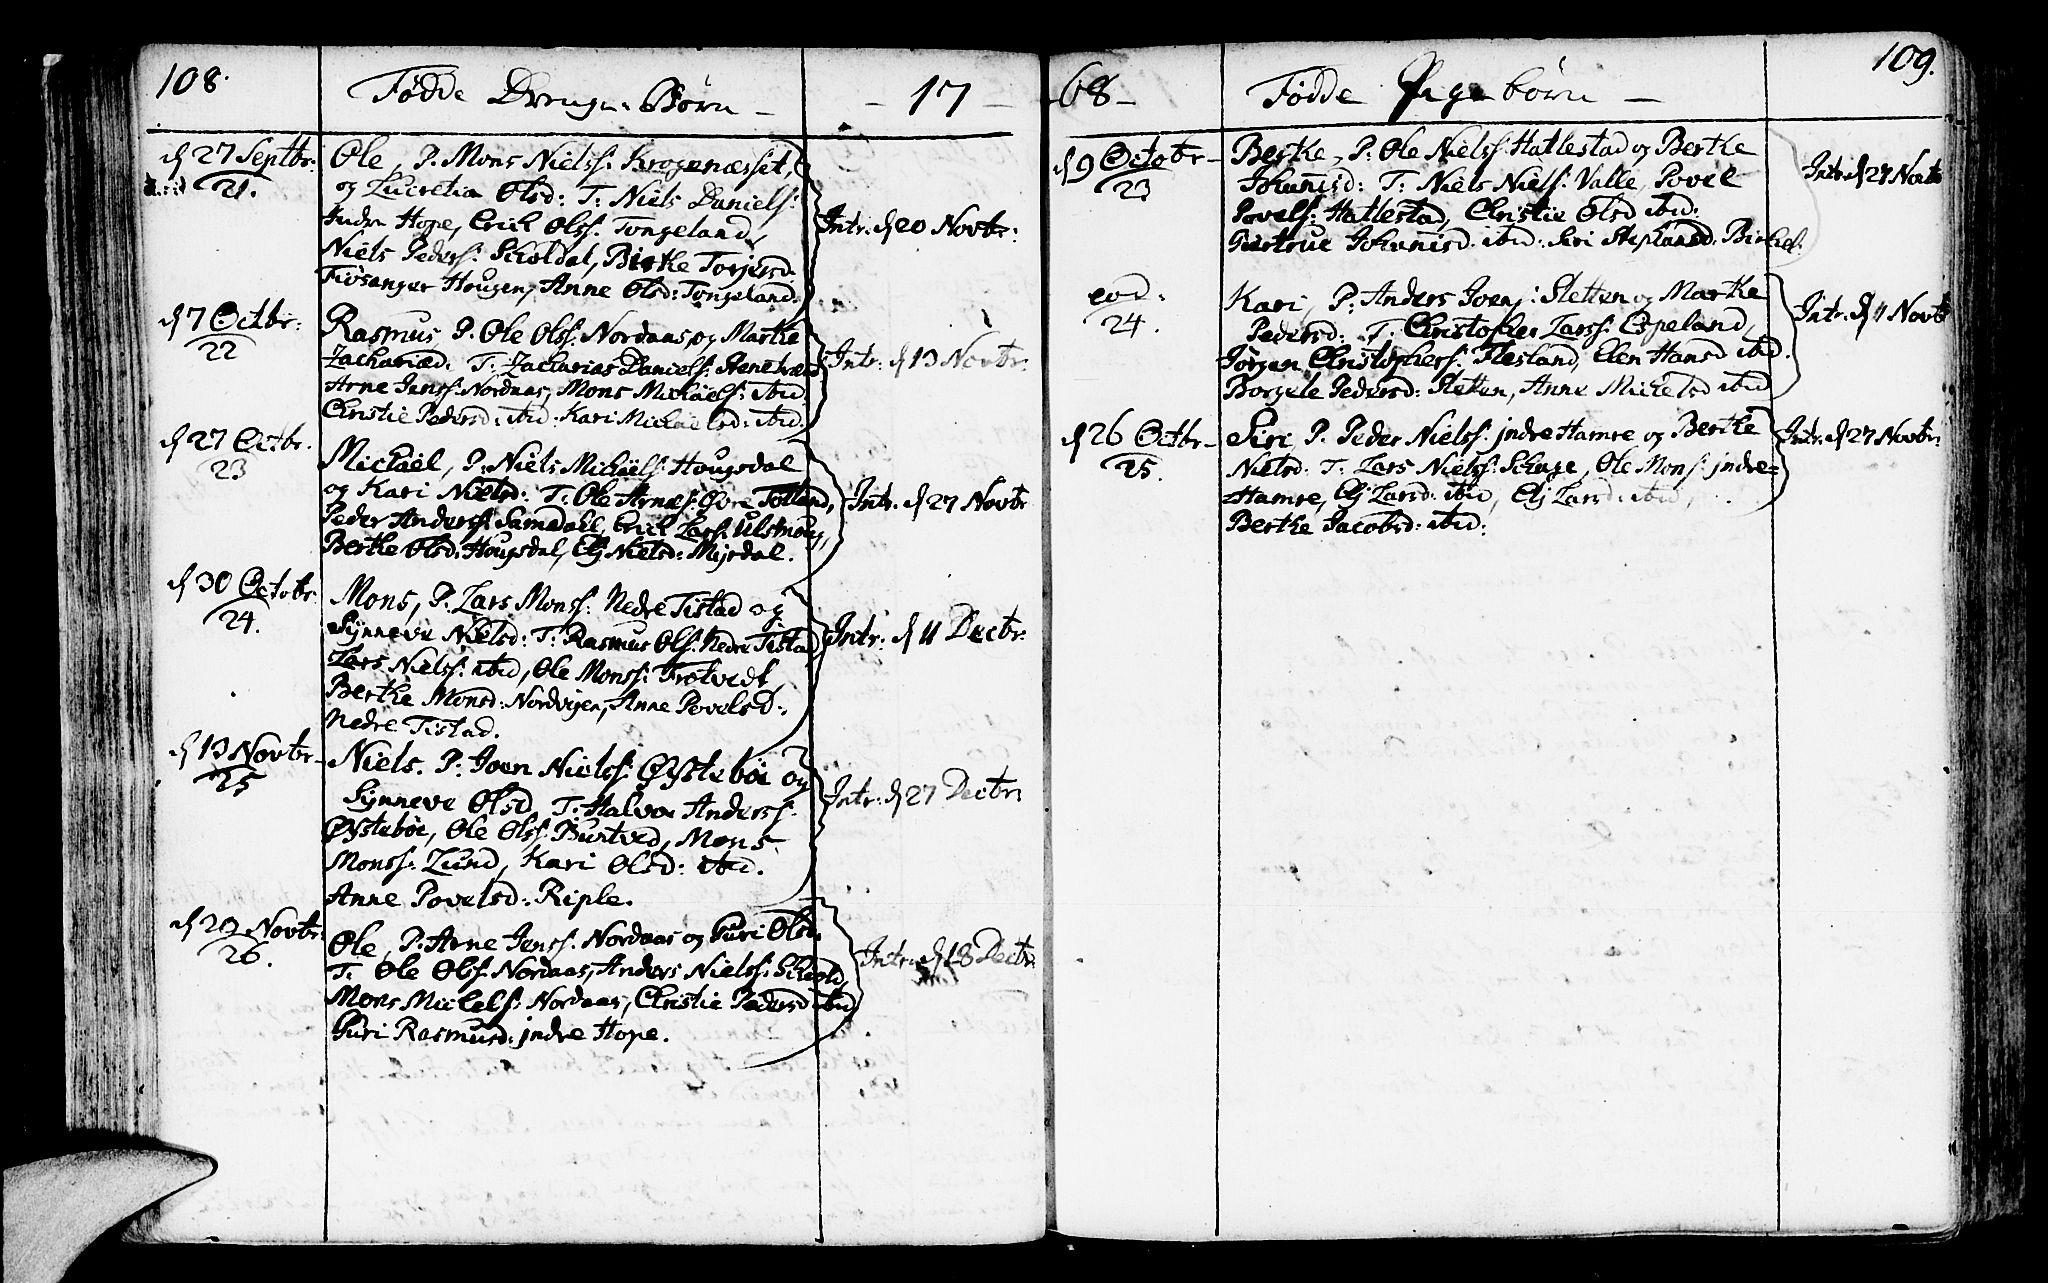 108.
Fødde Drenge-Børn –
– 17 –
d 27 Septbr:
21.
Ole, P. Mons Nielss: Krogenæsset,
og Lucretia Olsd: T: Niels Daniels:
Indre Hope, Erich Olss: Tongeland,
Niels Peders: Skoldal, Birte Torjersd
Fiøsanger Hougen, Anne Olsd: Tongeland.
Intr: d 20 Novbr:
d 7 Octbr:
22
Rasmus, P. Ole Olss: Nordaas, og Marthe
Zachariæd: T: Zacharias Daniels:
Arne Jenss: Nordaas, Mons Michaels: ibid.
Christie Pedersd: ibid: Kari Michaelsd: ibid.
Intr: d 13 Novbr:
d 27 Octbr.
23
Michaël, P: Niels Michëls: Hougsdal
og Kari Nielsd: T: Ole Arnes: Øvre Totland,
Peder Anderss: Samdahl, Erich Lars: Ulsmoug,
Berthe Olsd: Hougsdal, Elj Nielsd: Myrdal.
Intr: d 27 Novbr
d 30 Octobr:
24.
Mons, P. Lars Monss: Nedre Tistad og
Synneve Nielsd: T: Rasmus Ols: Nedre Tistad
Lars Nielss: ibid, Ole Monss: Trotvedt
Berthe Monsd: Nordvigen, Anne Povelsd:
Nedre Tistad.
Intr: d 11 Decbr:
d 13 Novbr
25
Niels. P: Joen Nielss: Østebøe og
Synneve Olsd, T: Halvor Anderss:
Østebøe, Ole Olss: Burtved, Mons
Monss: Lund, Kari Olsd: ibid.
Anne Povelsd: Riple.
Intr: d 27 Decbr:
d 20 Novbr:
26.
Ole, P: Arne Jenss: Nordaas og Guri Olsd.
T: Ole Olss: Nordaas, Anders Nielss: Schiold,
Mons Michels: Nordaas, Christie Pedersd ibid
Guri Rasmusd: jndre Hope.
Intr: d 18 Decbr:
68 –
Fødde Pigebørn –
109.
d 9 Octobr –
23
Berthe, P: Ole Nielss: Hatlestad og Berthe
Johanisd: T: Niels Niels: Valle, Povel
Povels: Hatlestad, Christie Olsd ibid:
Giertrue Johanisd. ibid: Siri Stephansd: Birkel:
Intr: d 27 Novb
eod:
24.
Kari, P: Anders Joens: Sletten og Marthe
Pedersd: T: Christopher Larss: Espeland,
Jørgen Christophers: Flesland, Elen Hansd ibid.
Borgele Pedersd: Sletten, Anne Michelsd ibid
Intr: d 11 Novb
d 26 Octbr –
25.
Siri P. Peder Nielss: jndre Hamre og Berthe
Nielsd: T: Lars Nielss: Schage, Ole Mons: jndre=
Hamre, Elj Larsd: ibid, Elj Larsd: ibid,
Berthe Jacobsd: ibid:
Intr: d 27 Novbr: